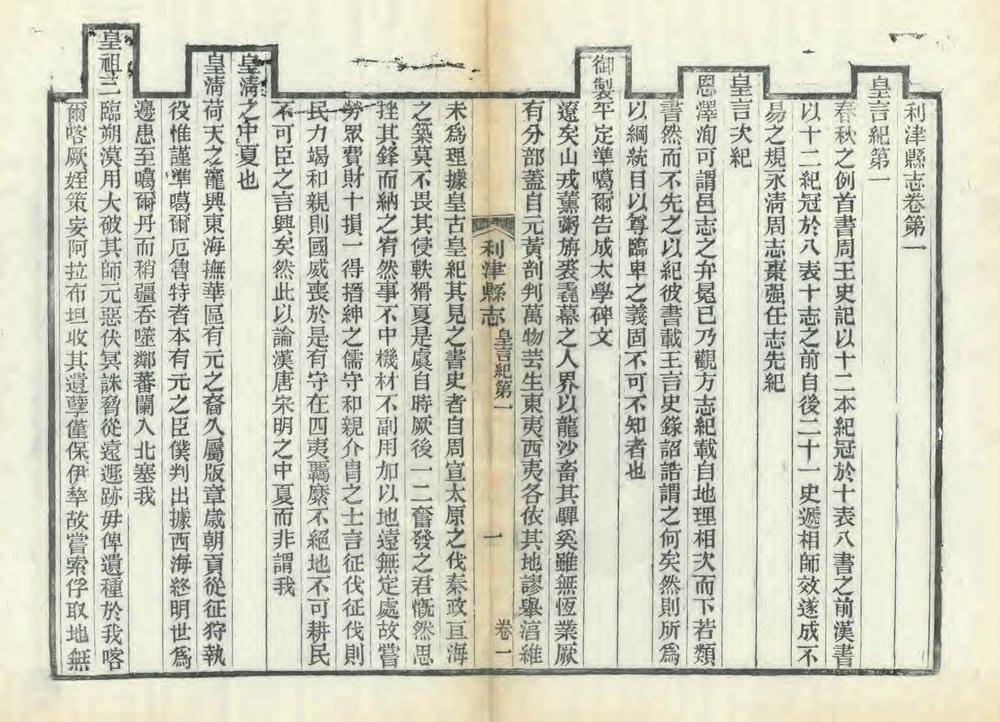 利津縣志卷第一
皇言紀第一
春秋之例首書周王史記以十二本紀冠於十表八書之前漢書
以十二紀冠於八表十志之前自後二十一史遞相師效遂成不
易之規永清周志棗强任志先紀
皇言次紀
恩澤洵可謂邑志之弁冕已乃觀方志紀載自地理相次而下若類
書然而不先之以紀彼書載王言史錄詔誥謂之何矣然則所爲
以綱統目以尊臨卑之義固不可不知者也
御製平定準噶爾告成太學碑文
遼矣山戎薰粥旃裘毳幕之人界以龍沙畜其驒奚雖無恆業厥
有分部蓋自元黃剖判萬物芸生東夷西夷各依其地謬舉淯維
利津縣志 皇言紀第一 一 卷一
未爲理據皇古皇紀其見之書史者自周宣太原之伐秦政亘海
之築莫不畏其侵軼猾夏是虞自時厥後一二奮發之君慨然思
挫其鋒而納之宥然事不中機材不副用加以地遠無定處故嘗
勞眾費財十損一得搢紳之儒守和親介胄之士言征伐征伐則
民力竭和親則國威喪於是有守在四夷羈縻不絕地不可耕民
不可臣之言興矣然此以論漢唐宋明之中夏而非謂我
皇淸之中夏也
皇淸荷天之寵興東海撫華區有元之裔久屬版章歲朝貢從征狩執
役惟謹準噶爾厄魯特者本有元之臣僕判出據西海終明世爲
邊患至噶爾丹而稍疆吞噬鄰蕃闌入北塞我
皇祖三臨朔漠用大破其師元惡伏冥誅脅從遠遯跡毋俾遺種於我喀
爾喀厥姪策妄阿拉布坦收其遺孽僅保伊犂故嘗索俘取地無